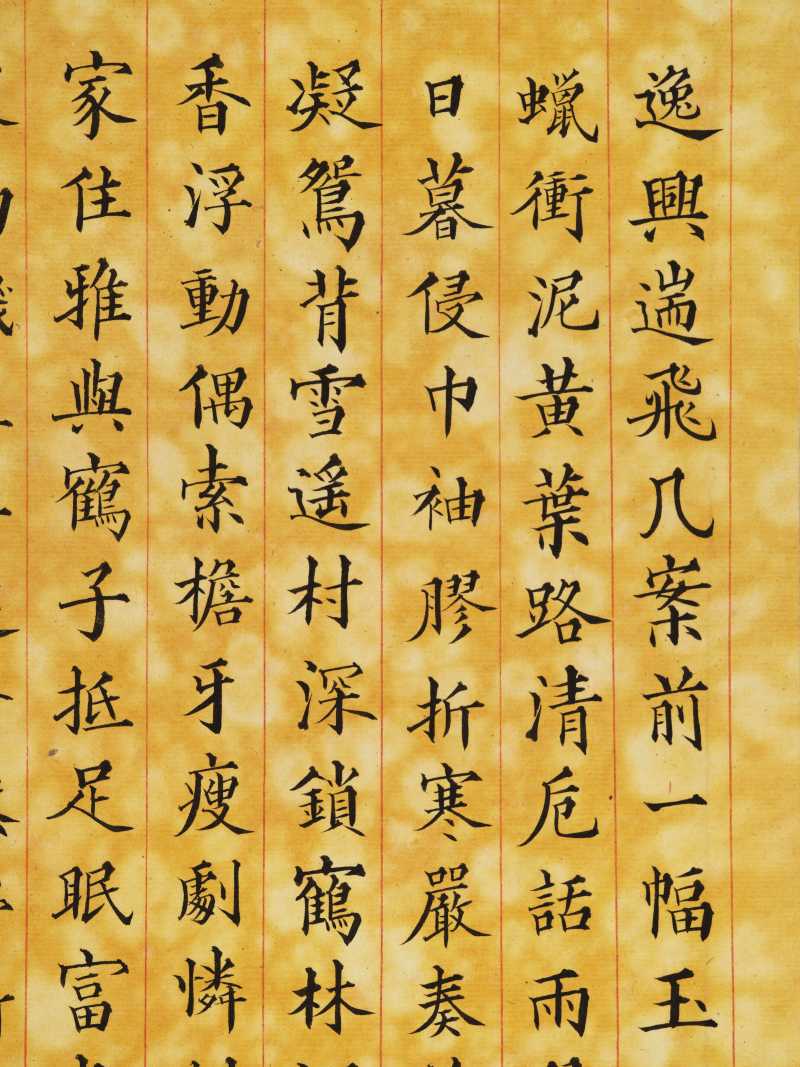 逸興遄飛几案前一幅玉
蠟衝泥黃葉路清卮話雨
日暮侵巾袖膠折寒嚴奏
凝鴛背雪遥村深鎖鶴林
香浮動偶索檐牙瘦劇憐
家住雅與鶴子抵足眠富